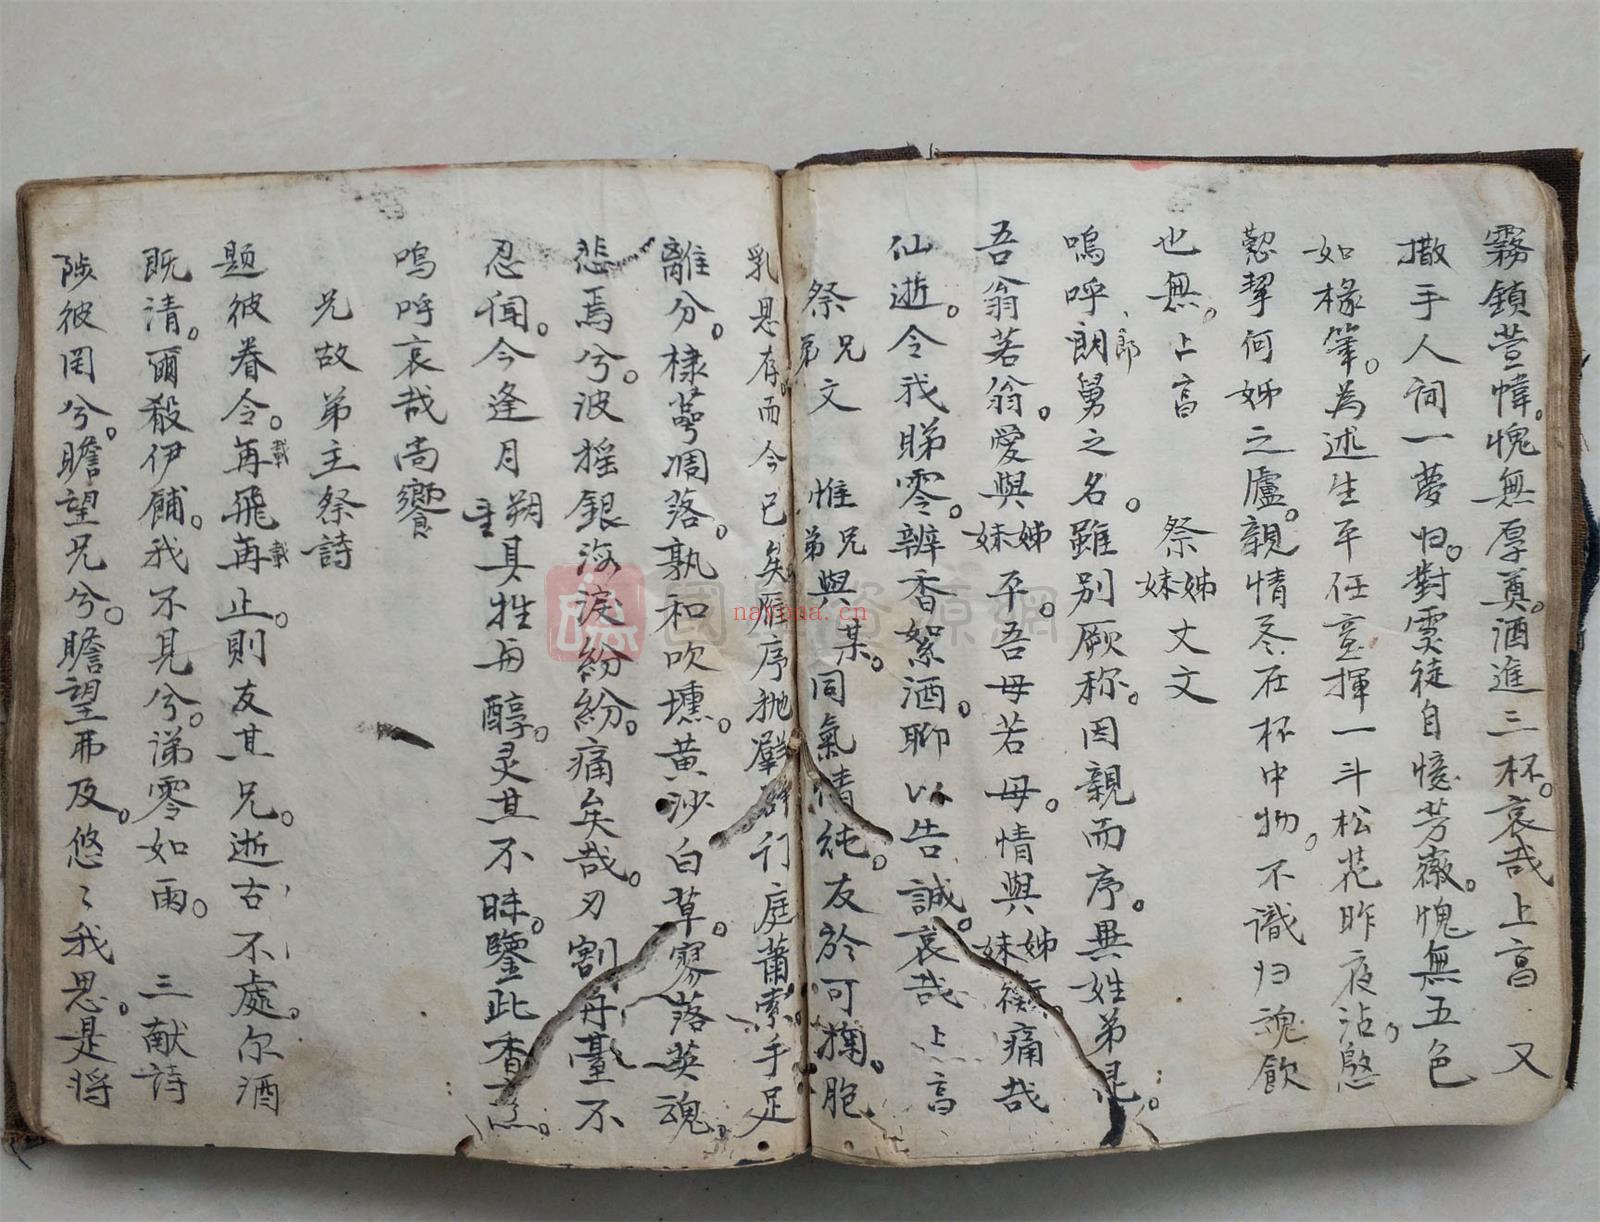 霧鎖萱幃。愧無厚奠。酒進三杯。哀哉上亯 又
撒手人詞一夢归。對霊徒自憶芳薇。愧無五色
如椽筆。為述生平任意揮一斗松花昨夜沽。慇
懃挈何姊之廬。親情尽在杯中物。不識归魂飲
也無。上亯 祭姊妹丈文
嗚呼朗郎舅之名。雖别厥称。因親而序。異姓弟昆。
吾翁若翁。愛與姊妹平。吾母若母。情與姊妹衡痛哉
仙逝。令我睇零。辦香絮酒。聊以告誠。哀哉上亯
祭兄弟文 惟兄弟與某。同氣情純。友於可掬。胞
乳恩存。而今已矣雁序抛羣群行庭蕭索。手足
離分。棣萼凋落。孰和吹壎。黄沙白草。寥落英魂。
悲焉兮。波摇銀海淚紛紛。痛矣哉。刃割丹臺不
忍闻。今逢月朔重具牲与醇。灵其不昧。鑒此香
嗚呼哀哉尚饗
兄故弟主祭詩
题彼脊令。再載飛再載止。則友其兄。逝古不處。尔酒
既清。爾殽伊餔。我不見兮。涕零如雨。 三献詩
陟彼罔兮。瞻望兄兮。瞻望弗及。悠〻我思。是将
國學資源網
nayona.cn